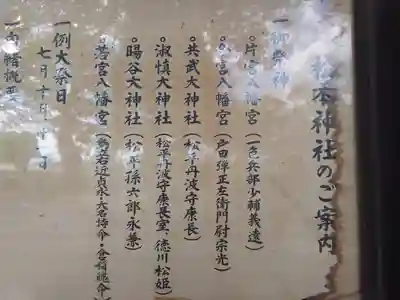 松本神社のご案内
一御祭神
○片宮八幡宮(一色兵部少輔義遠)
○今宮八幡宮(戸田弾正左衛門尉宗光)
○共武大神社(松平丹波守康長)
○淑慎大神社(松平丹波守康長室、徳川松姫)
○暘谷大神社(松平孫六郎永兼)
○若宮八幡宮(島立右近貞永・大名持命・倉稲魂命)
一例大祭日
七月十